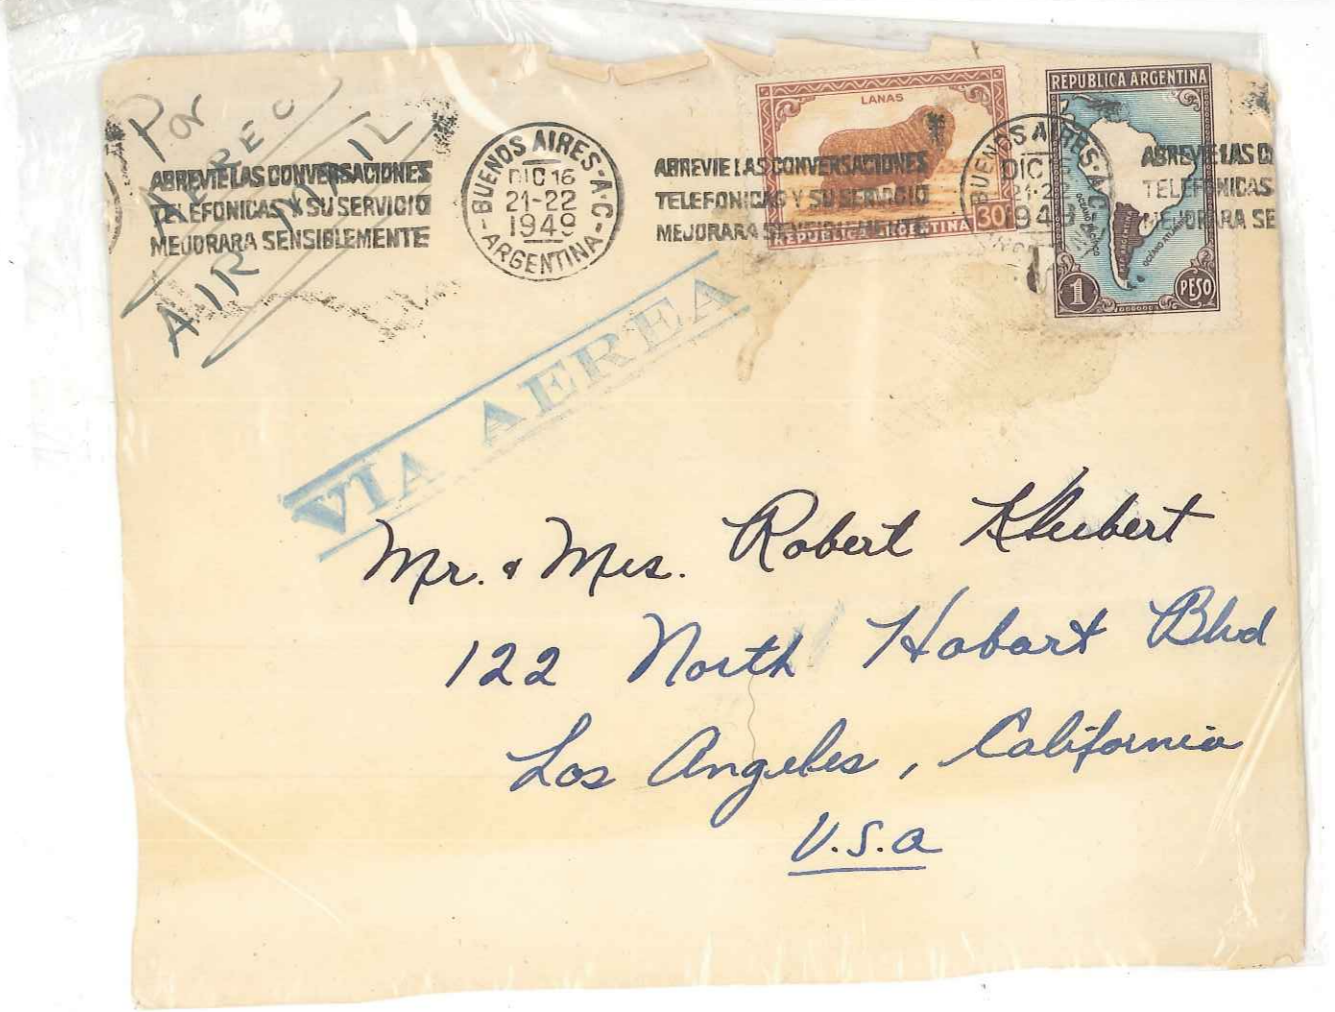 Por
AEREO
AIR MAIL
ABREVIE LAS CONVERSACIONES
TELEFONICAS Y SU SERVICIO
MEJORARA SENSIBLEMENTE
BUENOS AIRES - A.C.
DIC 16
21-22
1949
- ARGENTINA -
ABREVIE LAS CONVERSACIONES
TELEFONICAS Y SU SERVICIO
MEJORARA SENSIBLEMENTE
LANAS
REPUBLICA ARGENTINA 30
BUENOS AIRES - A.C.
DIC
21-22
1949
REPUBLICA ARGENTINA
1 PESO
ABREVIE LAS CO
TELEFONICAS
MEJORARA SE
VIA AEREA
Mr. & Mrs. Robert
122 North Hobart Blvd
Los Angeles, California
U.S.A